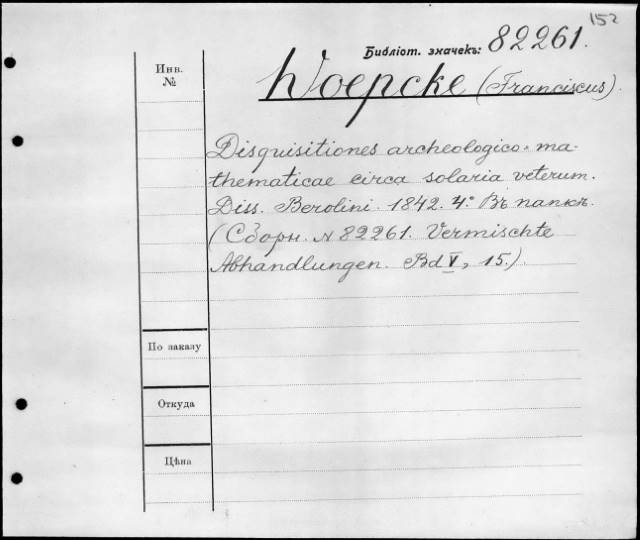 152
Библіот. значекъ: 82261.
Инв. №
Woepcke (Franciscus).
Disquisitiones archeologico-ma-
thematicae circa solaria veterum.
Diss. Berolini. 1842. 4.° Въ папкѣ.
(Сборн. № 82261. Vermischte
Abhandlungen. Bd V, 15.)
По заказу
Откуда
Цѣна